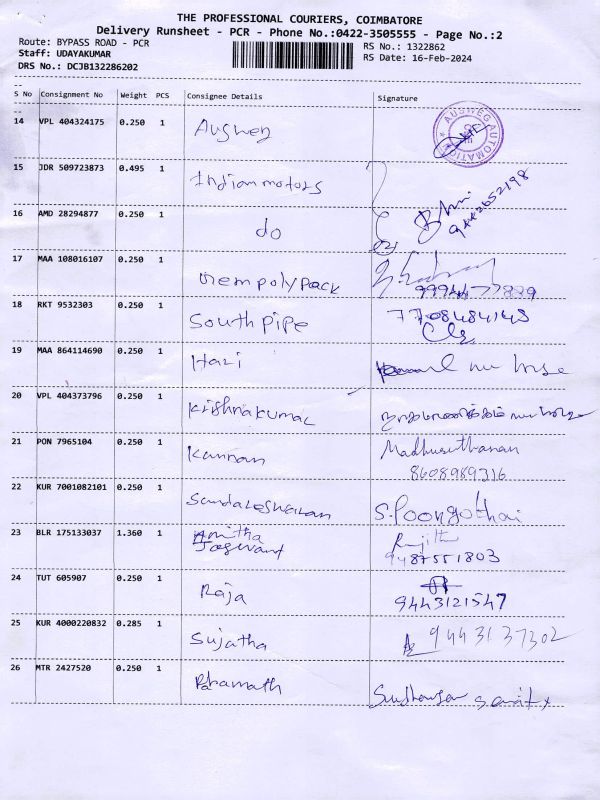 THE PROFESSIONAL COURIERS, COIMBATORE
Delivery Runsheet - PCR - Phone No.:0422-3505555 - Page No.:2
Route: BYPASS ROAD - PCR
Staff: UDAYAKUMAR
DRS No.: DCJB132286202
RS No.: 1322862
RS Date: 16-Feb-2024
S No Consignment No Weight PCS Consignee Details Signature
14 VPL 404324175 0.250 1 Ausweg
AUSWEG AUTOMATION
15 JDR 509723873 0.495 1 Indian motors
16 AMD 28294877 0.250 1 do
9442652198
17 MAA 108016107 0.250 1 polypack
18 RKT 9532303 0.250 1 South pipe 7708484148
19 MAA 864114690 0.250 1 Hari
20 VPL 404373796 0.250 1 Krishnakumar
21 PON 7965104 0.250 1 Kannan Madhusuthanan
8608989316
22 KUR 7001082101 0.250 1 Sundareshwaran S.Poongothai
23 BLR 175133037 1.360 1 Amitha Ranjith
Jaswant 9487551803
24 TUT 605907 0.250 1 Raja
9443121547
25 KUR 4000220832 0.285 1 Sujatha 9443137302
26 MTR 2427520 0.250 1